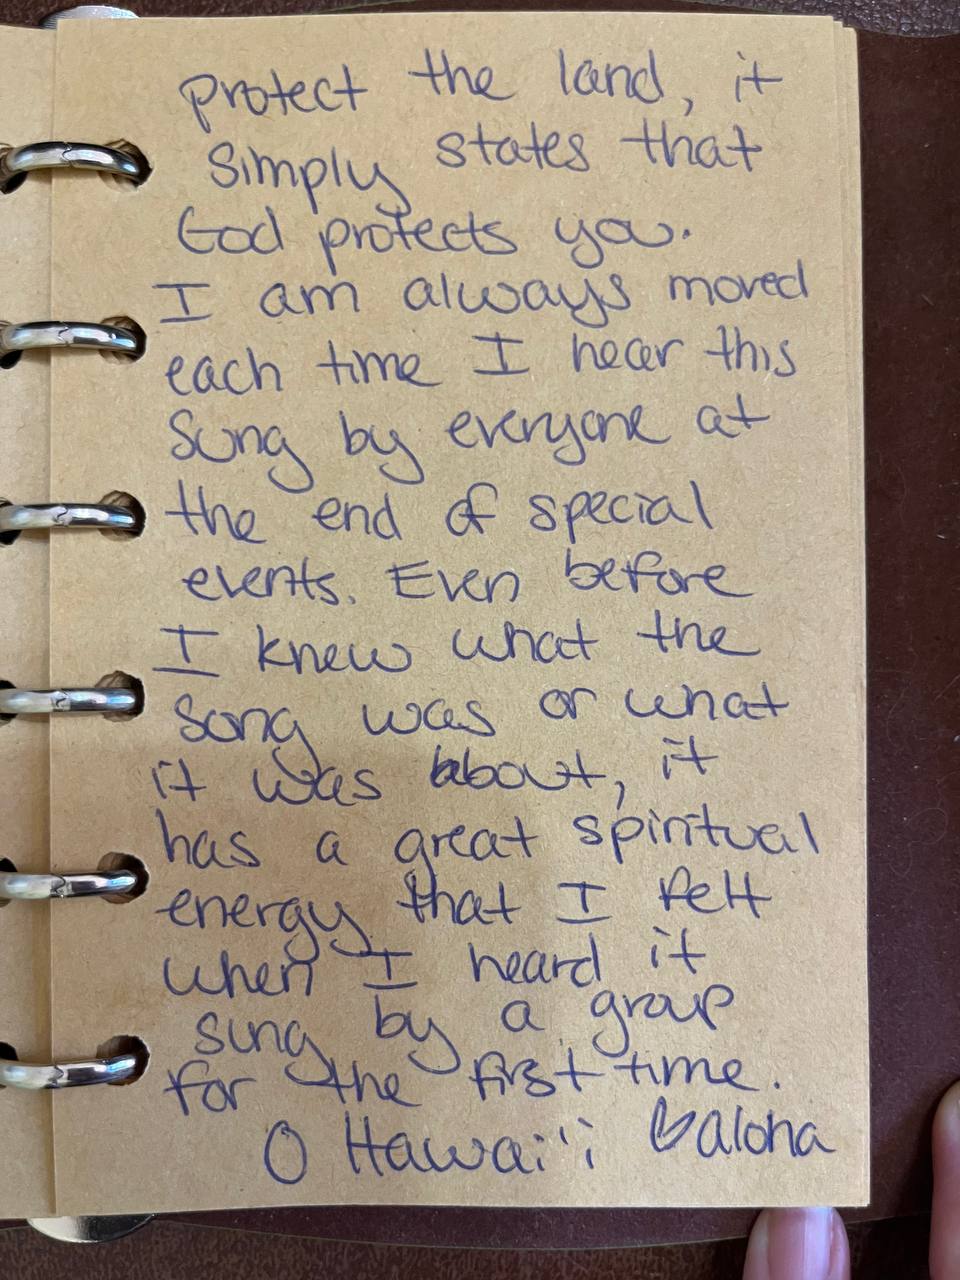 protect the land, it
simply states that
God protects you.
I am always moved
each time I hear this
sung by everyone at
the end of special
events. Even before
I knew what the
song was or what
it was about, it
has a great spiritual
energy that I felt
when I heard it
sung by a group
for the first time.
O Hawai'i ♡aloha